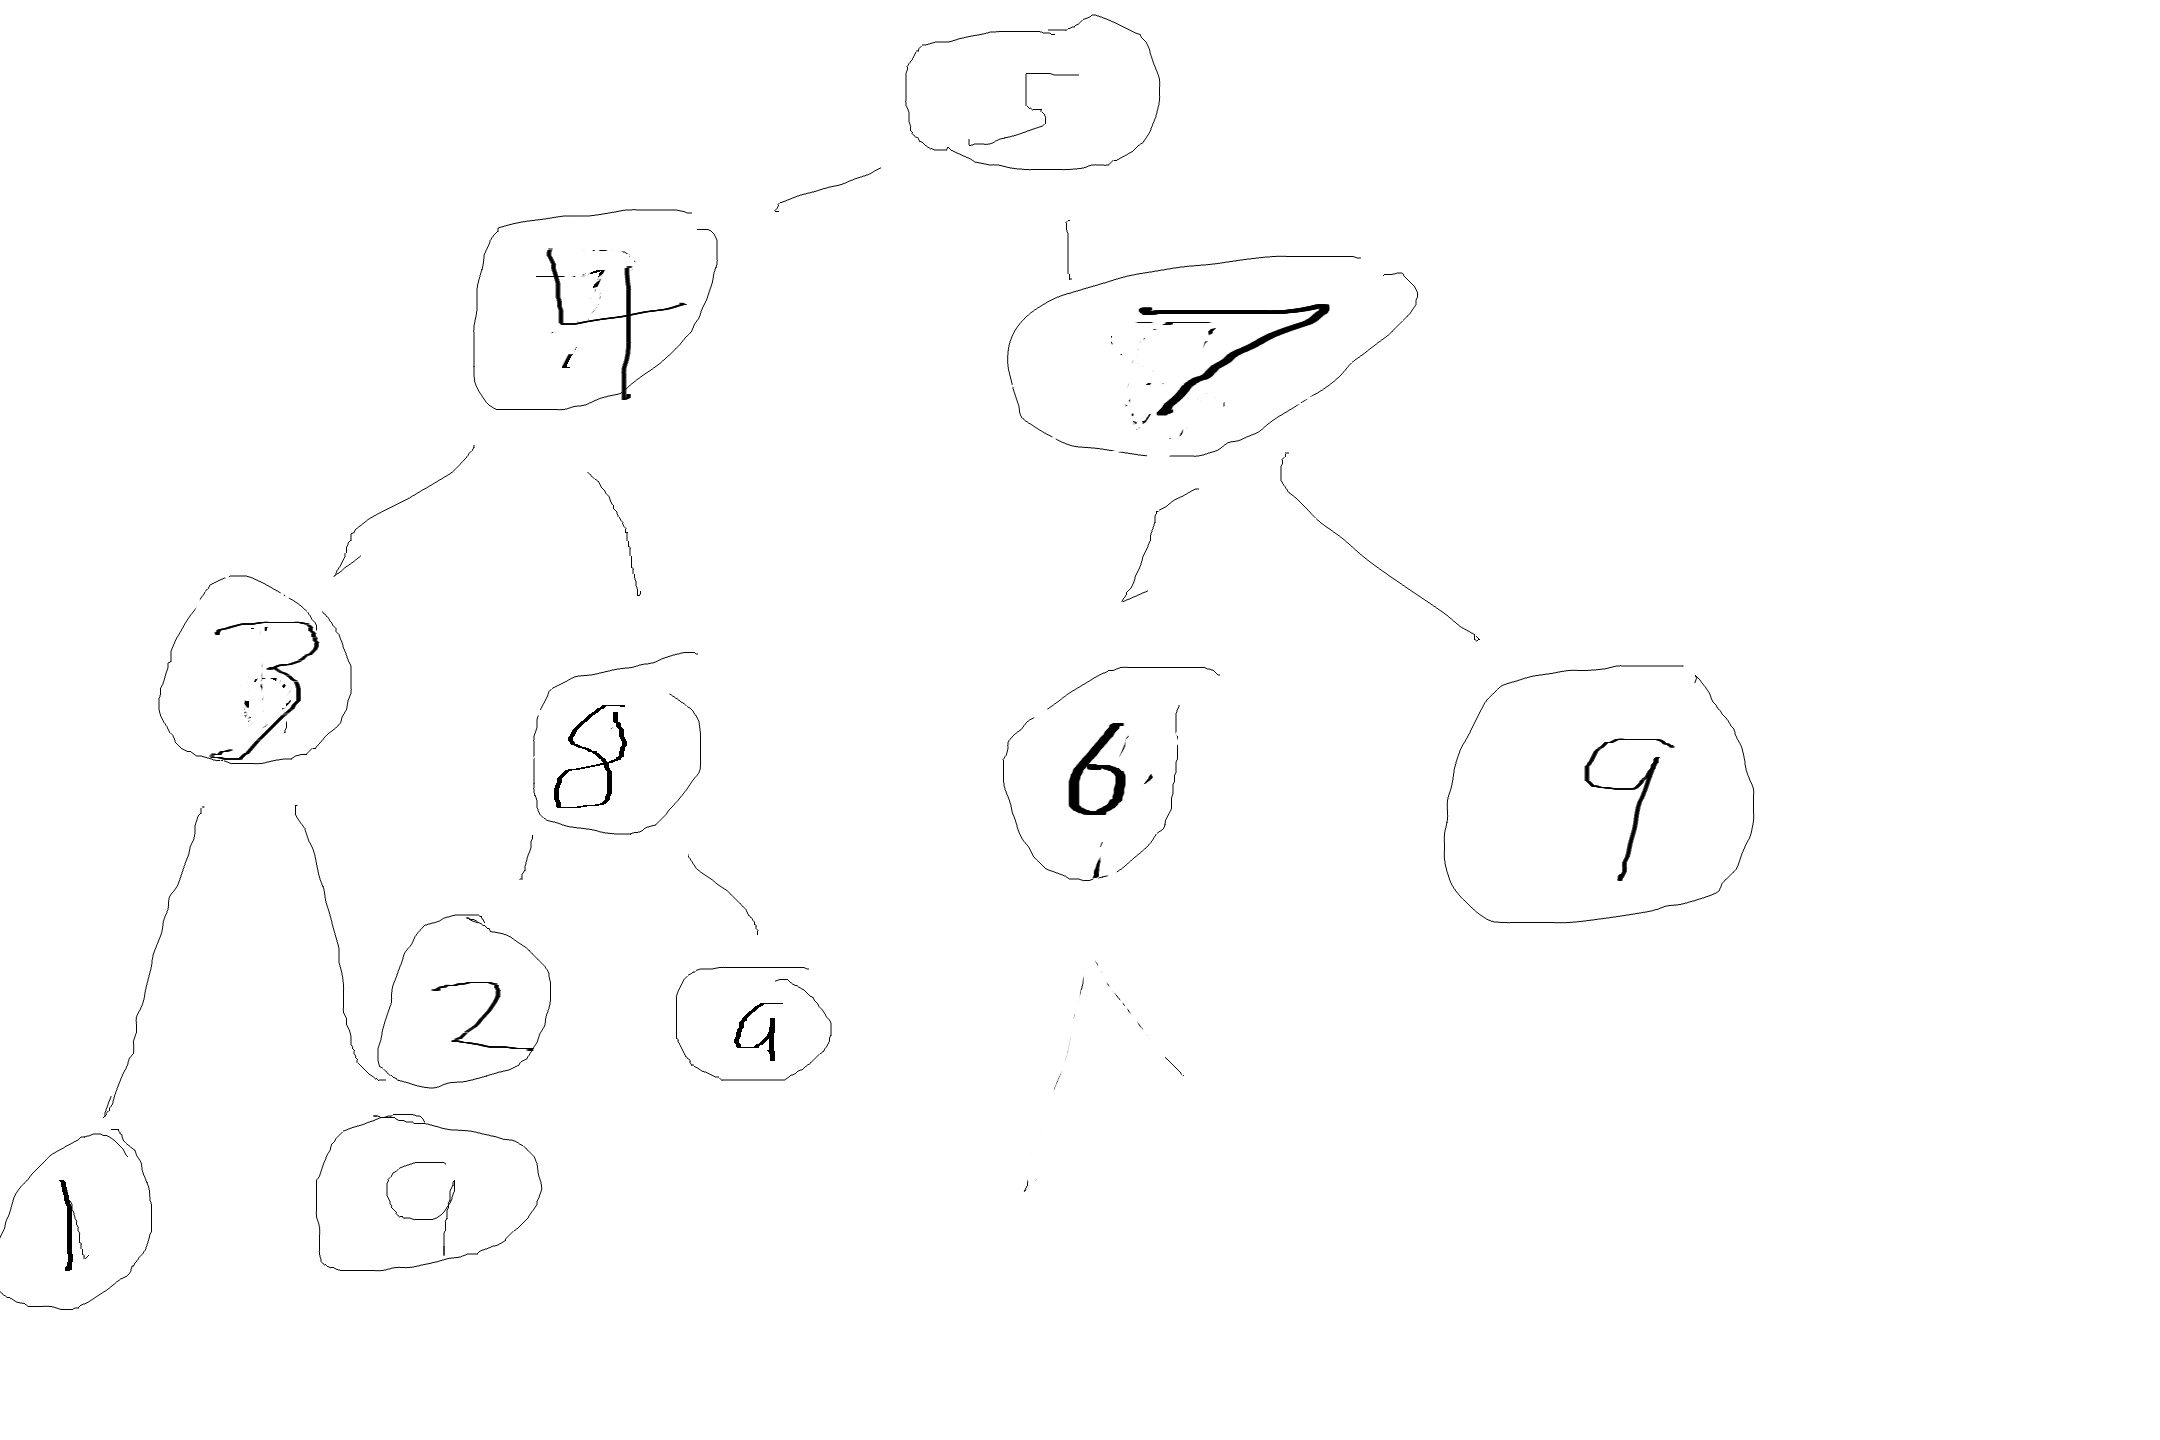 5
4 7
3 8 6 9
2 9
1 9